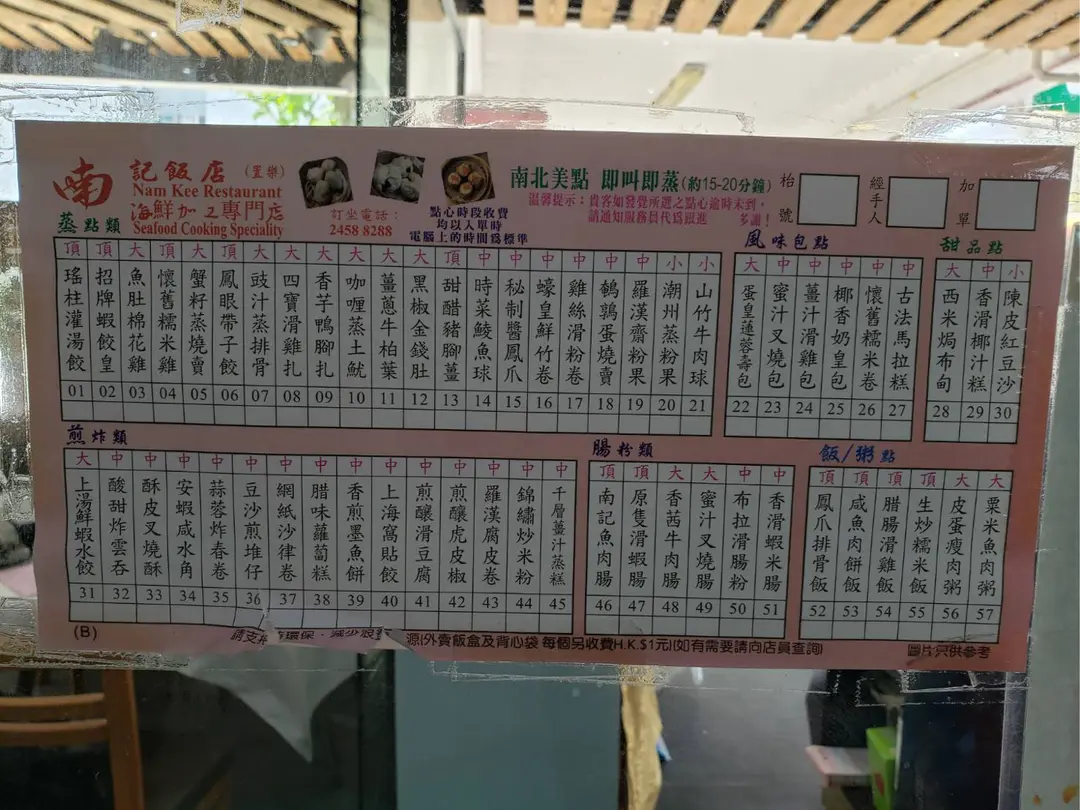 喃記飯店(置樂)
Nam Kee Restaurant
海鮮加工專門店
Seafood Cooking Speciality
訂坐電話：
2458 8288
點心時段收費
均以入單時
電腦上的時間爲標準
南北美點 即叫即蒸(約15-20分鐘)
溫馨提示：貴客如發覺所選之點心逾時未到，
請通知服務員代爲跟進 多謝！
枱號
經手人
加單
蒸點類
頂 瑤柱灌湯餃 01
頂 招牌蝦餃皇 02
大 魚肚棉花雞 03
頂 懷舊糯米雞 04
大 蟹籽蒸燒賣 05
頂 鳳眼帶子餃 06
大 豉汁蒸排骨 07
大 四寶滑雞扎 08
大 香芋鴨腳扎 09
大 咖喱蒸土魷 10
大 薑蔥牛柏葉 11
大 黑椒金錢肚 12
頂 甜醋豬腳薑 13
中 時菜鯪魚球 14
中 秘制醬鳳爪 15
中 蠔皇鮮竹卷 16
中 雞絲滑粉卷 17
中 鵪鶉蛋燒賣 18
中 羅漢齋粉果 19
小 潮州蒸粉果 20
小 山竹牛肉球 21
風味包點
大 蛋皇蓮蓉壽包 22
中 蜜汁叉燒包 23
中 薑汁滑雞包 24
中 椰香奶皇包 25
中 懷舊糯米卷 26
中 古法馬拉糕 27
甜品點
大 西米焗布甸 28
中 香滑椰汁糕 29
小 陳皮紅豆沙 30
煎炸類
大 上湯鮮蝦水餃 31
中 酸甜炸雲吞 32
中 酥皮叉燒酥 33
中 安蝦咸水角 34
中 蒜蓉炸春卷 35
中 豆沙煎堆仔 36
中 網紙沙律卷 37
中 腊味蘿蔔糕 38
中 香煎墨魚餅 39
中 上海窩貼餃 40
中 煎釀滑豆腐 41
中 煎釀虎皮椒 42
中 羅漢腐皮卷 43
中 錦繡炒米粉 44
中 千層薑汁蒸糕 45
腸粉類
頂 南記魚肉腸 46
頂 原隻滑蝦腸 47
大 香茜牛肉腸 48
大 蜜汁叉燒腸 49
中 布拉滑腸粉 50
中 香滑蝦米腸 51
飯/粥點
頂 鳳爪排骨飯 52
頂 咸魚肉餅飯 53
頂 腊腸滑雞飯 54
頂 生炒糯米飯 55
大 皮蛋瘦肉粥 56
大 粟米魚肉粥 57
(B)
請支持環保，減少浪費 源(外賣飯盒及背心袋 每個另收費H.K.$1元)(如有需要請向店員查詢)
圖片只供參考